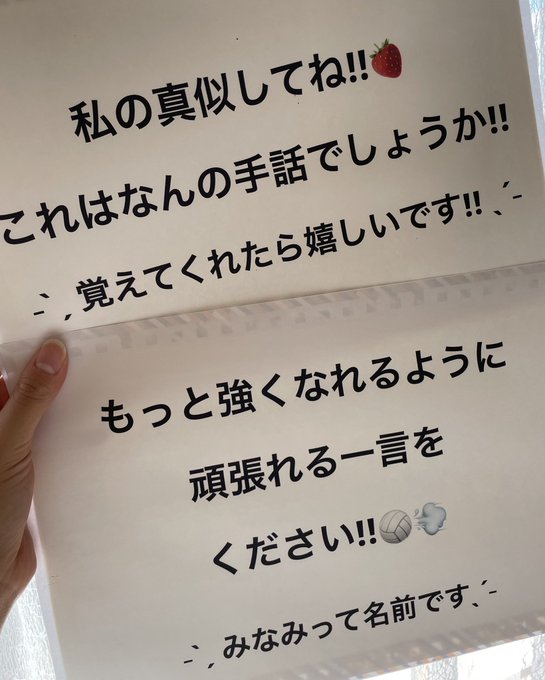 私の真似してね!!🍓
これはなんの手話でしょうか!!
-`ˏ覚えてくれたら嬉しいです!!ˎ´-
もっと強くなれるように
頑張れる一言を
ください!!🏐💨
-`ˏみなみって名前ですˎ´-